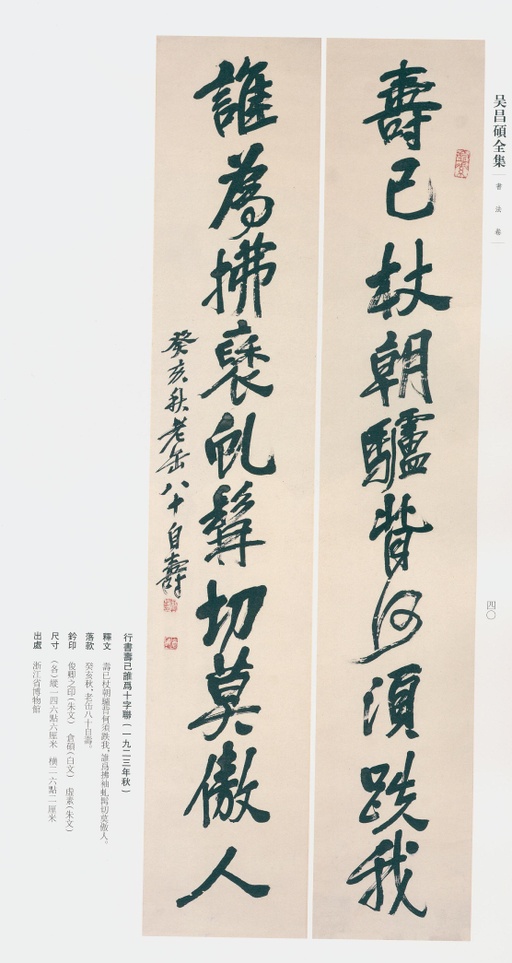 吴昌碩全集
書法卷
四〇
壽已杖朝驢背何須跌我
誰為拂褎虬髯切莫傲人
癸亥秋老缶八十自壽
行書壽已誰爲十字聯（一九二三年秋）
釋文　壽已杖朝驢背何須跌我，誰爲拂袖虬髯切莫傲人。
落款　癸亥秋，老缶八十自壽。
鈐印　俊卿之印（朱文）　倉碩（白文）　虛素（朱文）
尺寸　（各）縱一四六點六厘米　橫二六點二厘米
出處　浙江省博物館